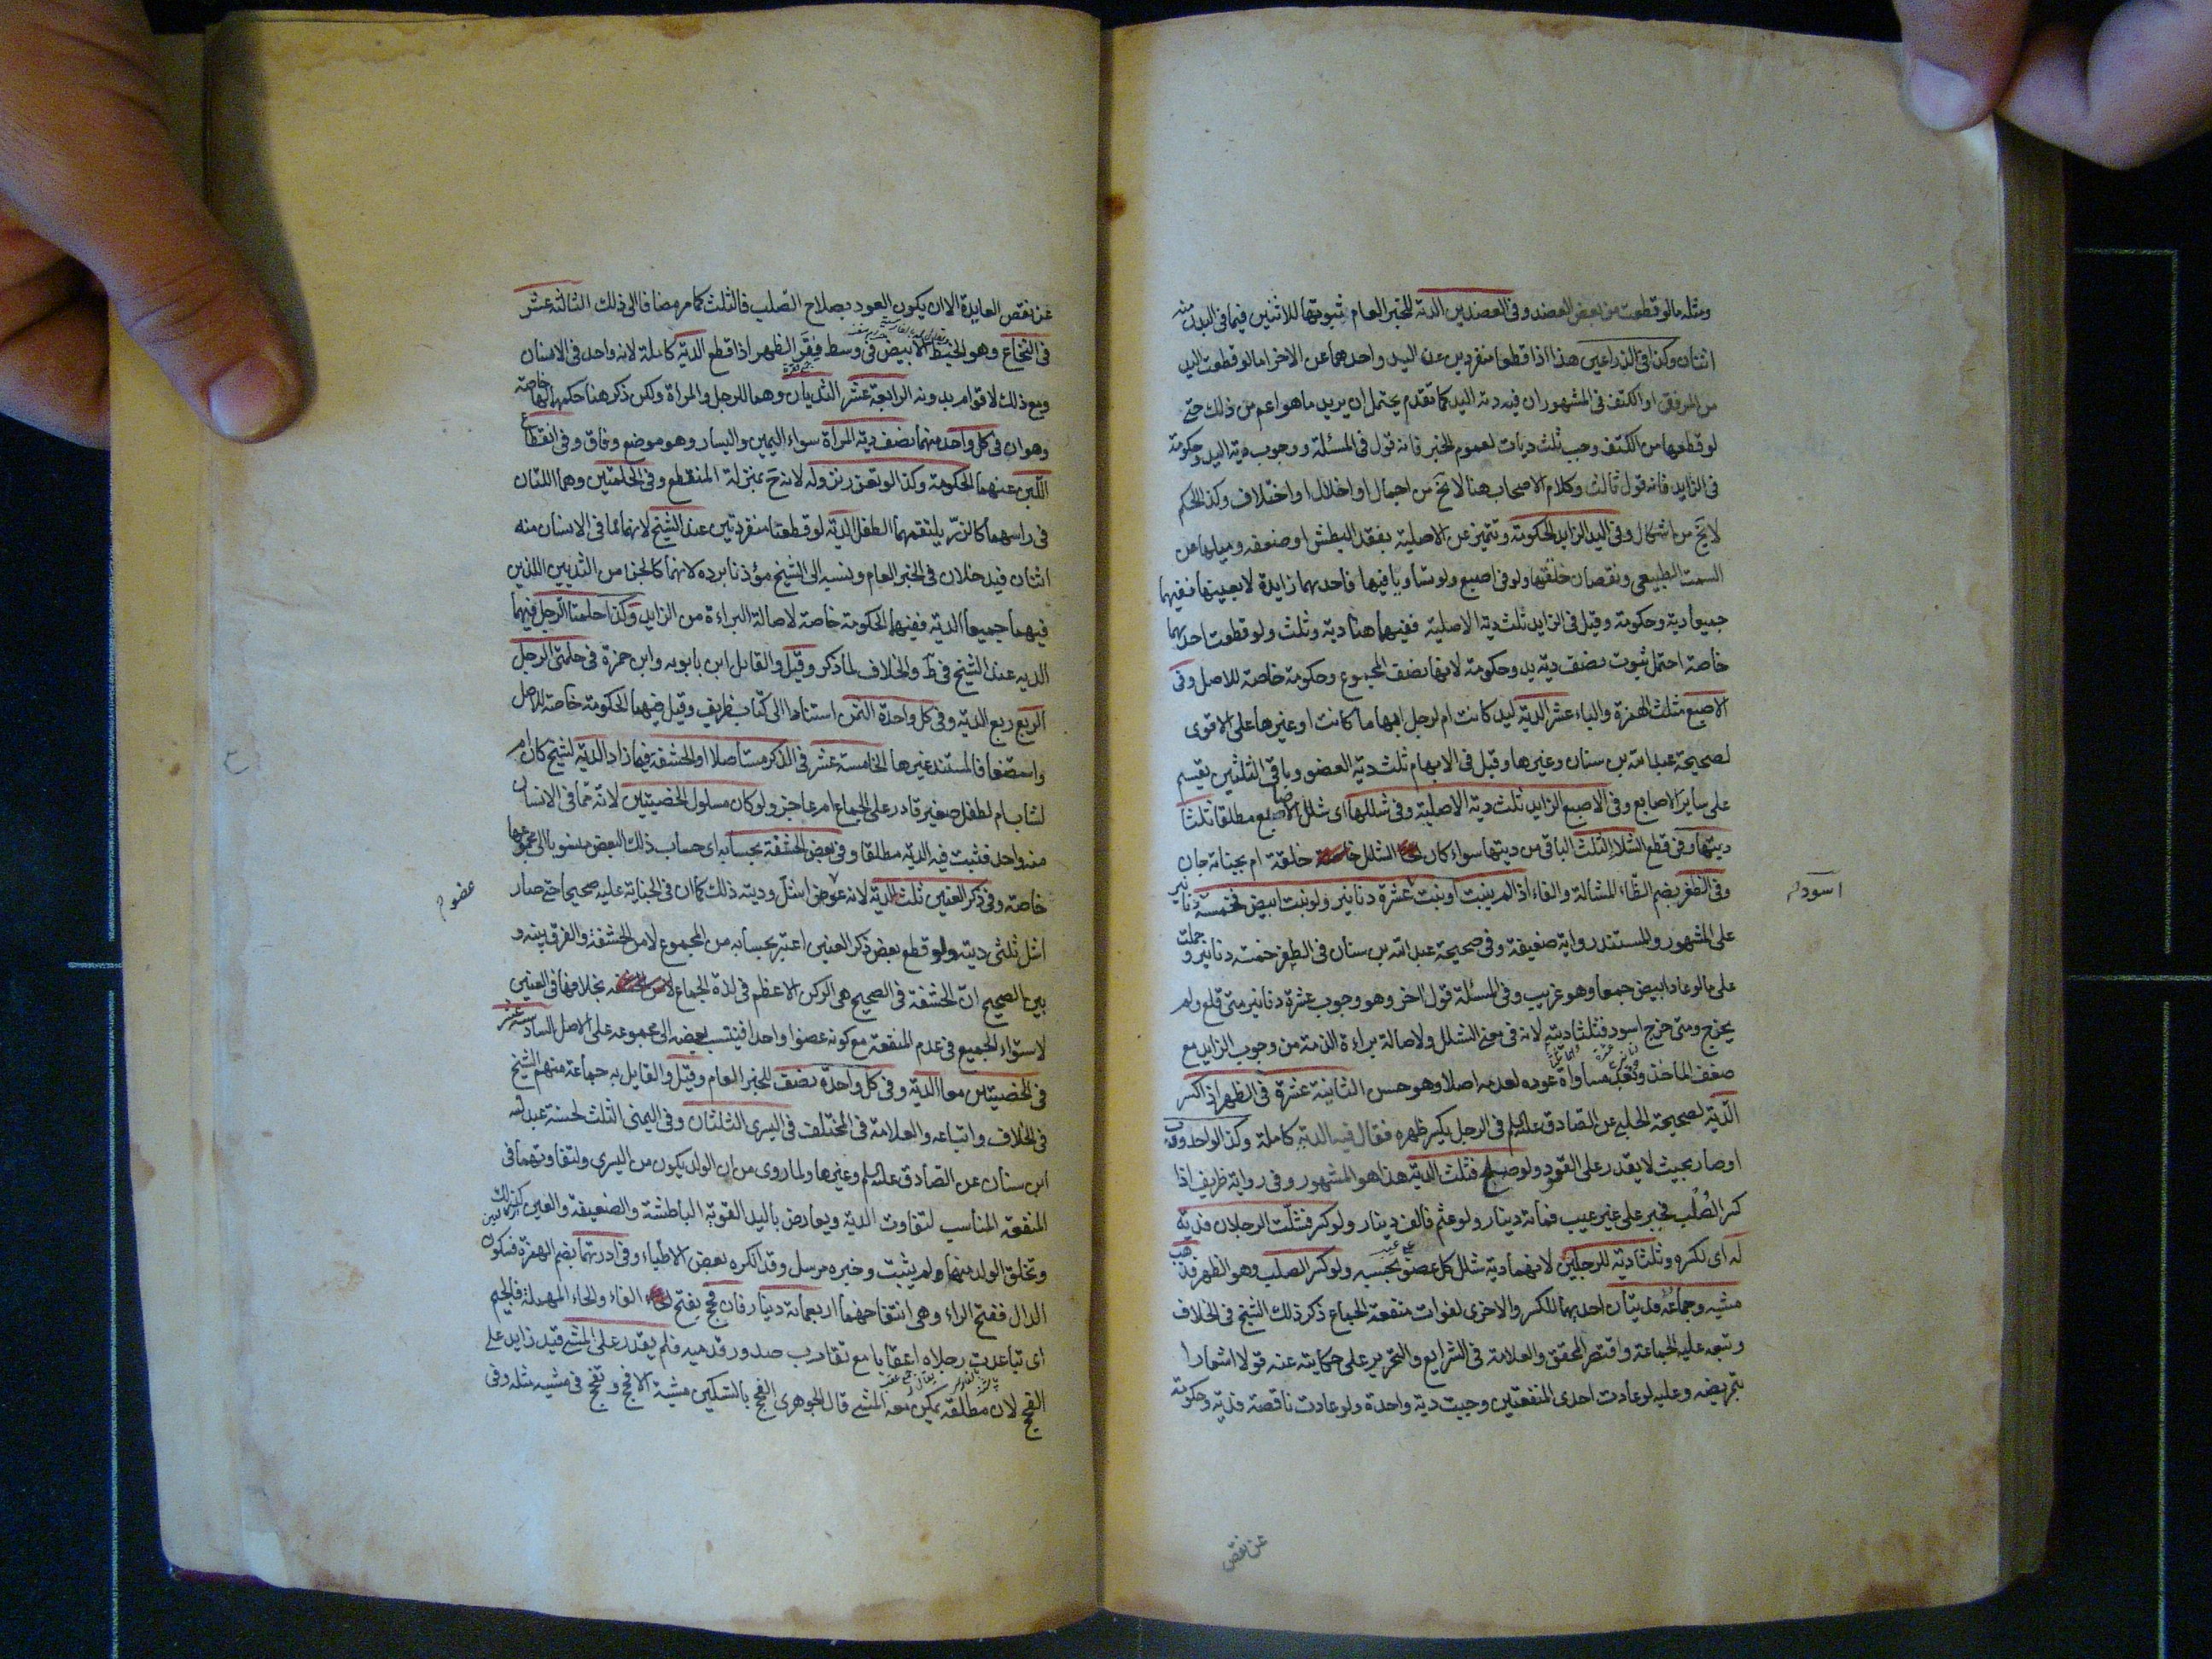 ومثله ما لو قطعت من بعض العضد وفى العضدين الدية للخبر العام بثبوتها للاثنين فيما فى البدن منه
اثنان وكذا فى الذراعين هذا اذا قطعا منفردين عن اليد واحدهما عن الاخر اما لو قطعت اليد
من المرفق او الكتف فى المشهور ان فيه دية اليد كما تقدم يحتمل ان يريد ما هو اعم من ذلك حتى
لو قطعها من الكتف وجب ثلث ديات لعموم الخبر فانه قول فى المسئلة ووجوب دية اليد وحكومة
فى الزايد فانه قول ثالث وكلام الاصحاب هنا لا يخ من اجمال او اخلال او اختلاف وكذا الحكم
لا يخ من اشكال وفى اليد الزايد الحكومة وتتميز عن الاصلية بفقد البطش او ضعفه وميلها عن
السمت الطبيعى ونقصان خلقتها ولو فى اصبع ولو تساويا فيها فاحديهما زايدة لا بعينها ففيهما
جميعا دية وحكومة وقيل فى الزايد ثلث دية الاصلية ففيهما هنا دية وثلث ولو قطعت احديهما
خاصة احتمل ثبوت نصف دية يد وحكومة لانها نصف المجموع وحكومة خاصة للاصل وفى
الاصبع مثلث الهمزة والباء عشر الدية ليد كانت ام لرجل ابهاما كانت او غيرها على الاقوى
لصحيحة عبد الله بن سنان وغيرها وقيل فى الابهام ثلث دية العضو وباقى الثلثين يقسم
على ساير الاصابع وفى الاصبع الزايد ثلث دية الاصلية وفى شللها اى شلل الاصبع مطلقا ثلثا
ديتها وفى قطع الشلاء الثلث الباقى من ديتها سواء كان الشلل خلقة ام بجناية جان
وفى الظفر بضم الظاء المشالة والفاء اذا لم ينبت او نبت عشرة دنانير ولو نبت ابيض فخمسة دنانير
اسود
على المشهور والمستند رواية ضعيفة وفى صحيحة عبد الله بن سنان فى الظفر خمسة دنانير وحملت
على ما لو عاد ابيض جمعا وهو غريب وفى المسئلة قول اخر وهو وجوب عشرة دنانير متى قلع ولم
يخرج ومتى خرج اسود فثلثا ديته لانه فى معنى الشلل ولاصالة براءة الذمة من وجوب الزايد مع
ضعف الماخذ وبعد مساواة عوده لعدمه اصلا وهو حسن الثانية عشرة فى الظهر اذا كسر
الدية لصحيحة الحلبى عن الصادق عليه السلم فى الرجل يكسر ظهره فقال فيه الدية كاملة وكذا لو احدودب
او صار بحيث لا يقدر على القعود ولو صلح فثلث الدية هذا هو المشهور وفى رواية ظريف اذا
كسر الصلب فجبر على غير عيب فمائة دينار ولو عثم فالف دينار ولو كسر فشلت الرجلان فدية
له اى لكسره وثلثا دية للرجلين لانهما دية شلل كل عضو بحسبه ولو كسر الصلب وهو الظهر فذهب
مشيه وجماعه فديتان احديهما للكسر والاخرى لفوات منفعة الجماع ذكر ذلك الشيخ فى الخلاف
وتبعه عليه الجماعة واقتصر المحقق والعلامة فى الشرايع والتحرير على حكايته عنه قولا اشعارا
بتمريضه وعليه لو عادت احدى المنفعتين وجبت دية واحدة ولو عادت ناقصة فدية وحكومة
عن نقص
عن نقص العايدة الا ان يكون العود بصلاح الصلب فالثلث كما مر مضافا الى ذلك الثالثة عشر
فى النخاع وهو الخيط الابيض فى وسط فقر الظهر اذا قطع الدية كاملة لانه واحد فى الانسان
ومع ذلك لا قوام بدونه الرابعة عشر الثديان وهما للرجل والمراة ولكن ذكر هنا حكمها خاصة
وهو ان فى كل واحد منهما نصف دية المراة سواء اليمين واليسار وهو موضع وفاق وفى انقطاع
اللبن عنهما الحكومة وكذا لو تعذر نزوله لانه ح بمنزلة المنقطع وفى الحلمتين وهما اللتان
فى راسهما كالزر يلتقمهما الطفل الدية لو قطعتا منفردتين عند الشيخ لانهما مما فى الانسان منه
اثنان فيدخلان فى الخبر العام ونسبه الى الشيخ مؤذنا برده لانهما كالجزء من الثديين اللذين
فيهما جميعا الدية ففيهما الحكومة خاصة لاصالة البراءة من الزايد وكذا حلمتا الرجل فيهما
الدية عند الشيخ فى ط والخلاف لما ذكر وقيل والقايل ابن بابويه وابن حمزة فى حلمتى الرجل
الربع ربع الدية وفى كل واحدة الثمن استنادا الى كتاب ظريف وقيل فيهما الحكومة خاصة للاصل
واستضعافا لمستند غيرها الخامسة عشر فى الذكر مستاصلا او الحشفة فما زاد الدية لشيخ كان ام
لشاب ام لطفل صغير قادر على الجماع ام عاجز ولو كان مسلول الخصيتين لانه مما فى الانسان
منه واحد فثبت فيه الدية مطلقا وفى بعض الحشفة بحسابه اى حساب ذلك البعض منسوبا الى مجموعها
خاصة وفى ذكر العنين ثلث الدية لانه عضو اشل وديته ذلك كما ان فى الجناية عليه صحيحا حتى صار
عضو
اشل ثلثى ديته ولو قطع بعض ذكر العنين اعتبر بحسابه من المجموع لا من الحشفة والفرق بينه و
بين الصحيح ان الحشفة فى الصحيح هى الركن الاعظم فى لذة الجماع بخلافها فى العنين
لاستواء الجميع فى عدم المنفعة مع كونه عضوا واحدا فينسب بعضه الى مجموعه على الاصل السادسة عشر
فى الخصيتين معا الدية وفى كل واحدة نصف للخبر العام وقيل والقايل به جماعة منهم الشيخ
فى الخلاف واتباعه والعلامة فى المختلف فى اليسرى الثلثان وفى اليمنى الثلث لحسنة عبد الله
ابن سنان عن الصادق عليه السلم وغيرها ولما روى من ان الولد يكون من اليسرى ولتفاوتهما فى
المنفعة المناسب لتفاوت الدية ويعارض باليد القوية الباطشة والضعيفة والعين كذلك
وتخلق الولد منها لم يثبت وخبره مرسل وقد انكره بعض الاطباء وفى ادرتهما بضم الهمزة فسكون
الدال ففتح الراء وهى انتفاخهما اربعمائة دينار فان فحج بفتح الفاء والحاء المهملة فالجيم
اى تباعدت رجلاه اعقابا مع تقارب صدور قدميه فلم يقدر على المشى قيد زايد على
الفحج لان مطلقه يمكن معه المشى قال الجوهرى الفحج بالتسكين مشية الافحج وتفحج فى مشيه مثله وفى